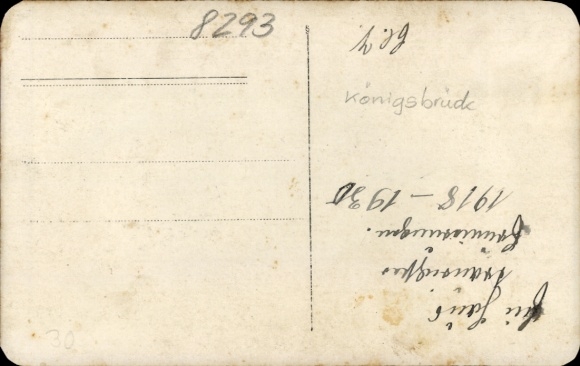 8293
Königsbrück
Ein Haus
trauriger
Erinnerungen.
1918 – 1930
30